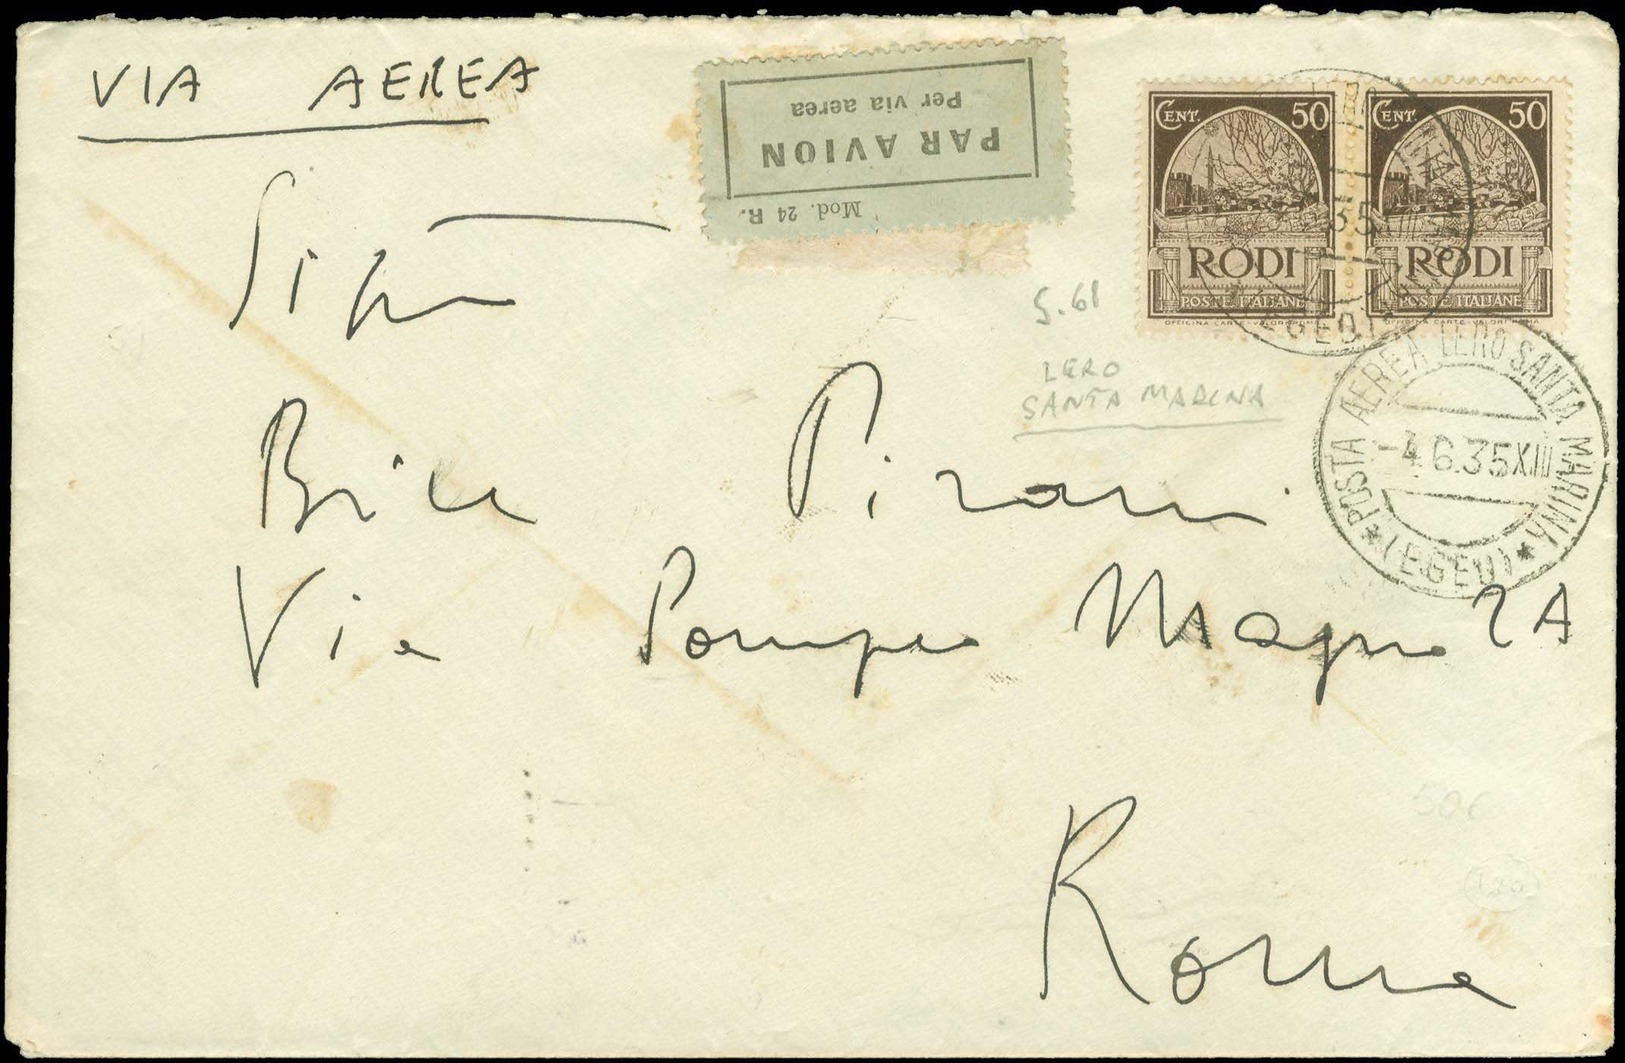 VIA AEREA
PAR AVION
Per via aerea
Mod. 24 R.
CENT. 50
RODI
POSTE ITALIANE
OFFICINA CARTE-VALORI ROMA
CENT. 50
RODI
POSTE ITALIANE
OFFICINA CARTE-VALORI ROMA
POSTA AEREA LERO SANTA MARINA
-4.6.35 XIII
(EGEO)
S. 61
LERO
SANTA MARINA
Sigra
Bice Pirani
Via Pompeo Magno 2A
Roma
50€